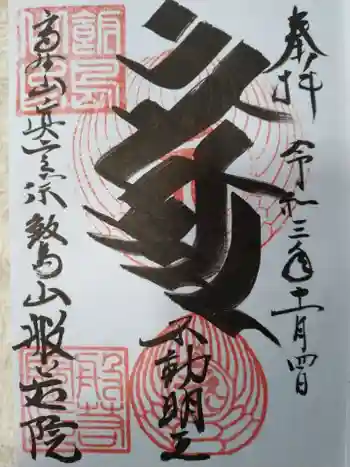 奉拝
令和三年十一月四日
不動明王
高野山真言宗敷島山般若院